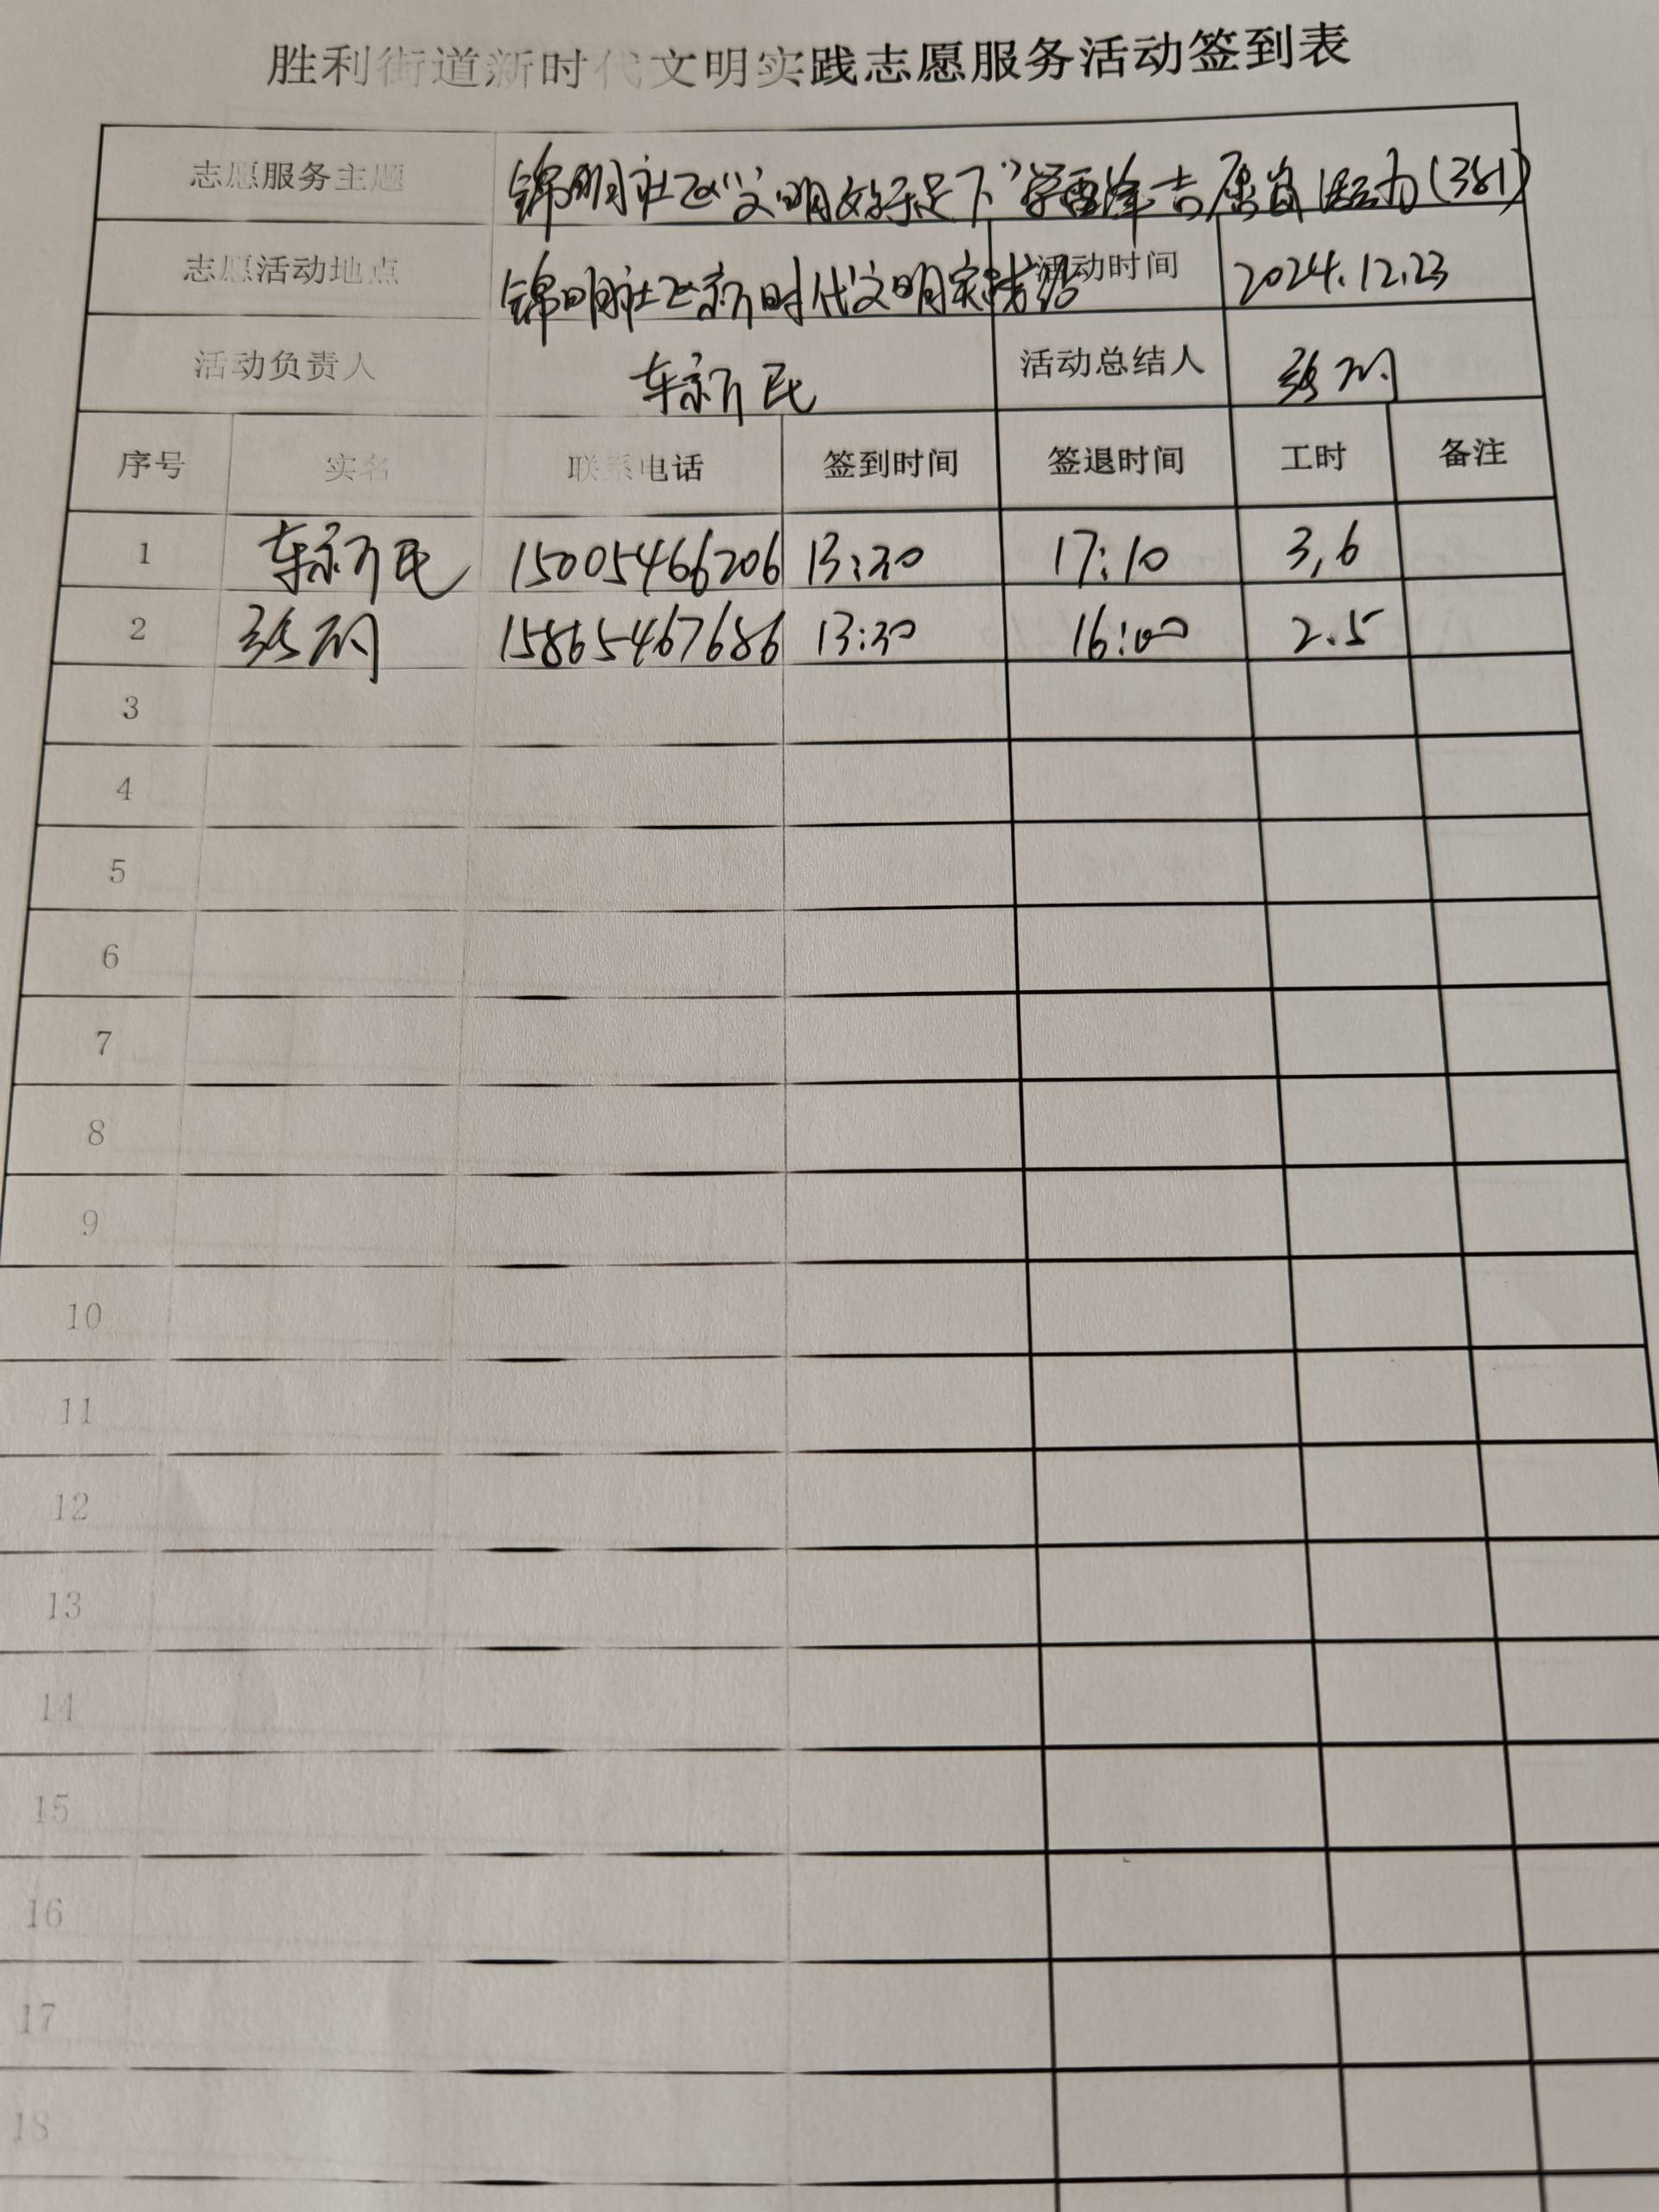 胜利街道新时代文明实践志愿服务活动签到表
志愿服务主题 锦明社区“文明始于足下”学雷锋志愿者活动(381)
志愿活动地点 锦明社区新时代文明实践站 活动时间 2024.12.23
活动负责人 车新民 活动总结人
序号 实名 联系电话 签到时间 签退时间 工时 备注
1 车新民 15005466206 13:30 17:10 3,6
2 15865467686 13:30 16:00 2.5
3
4
5
6
7
8
9
10
11
12
13
14
15
16
17
18